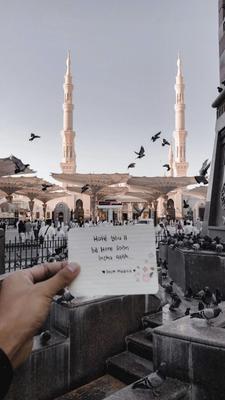 Hope you'll
be here soon
Insha Allah.